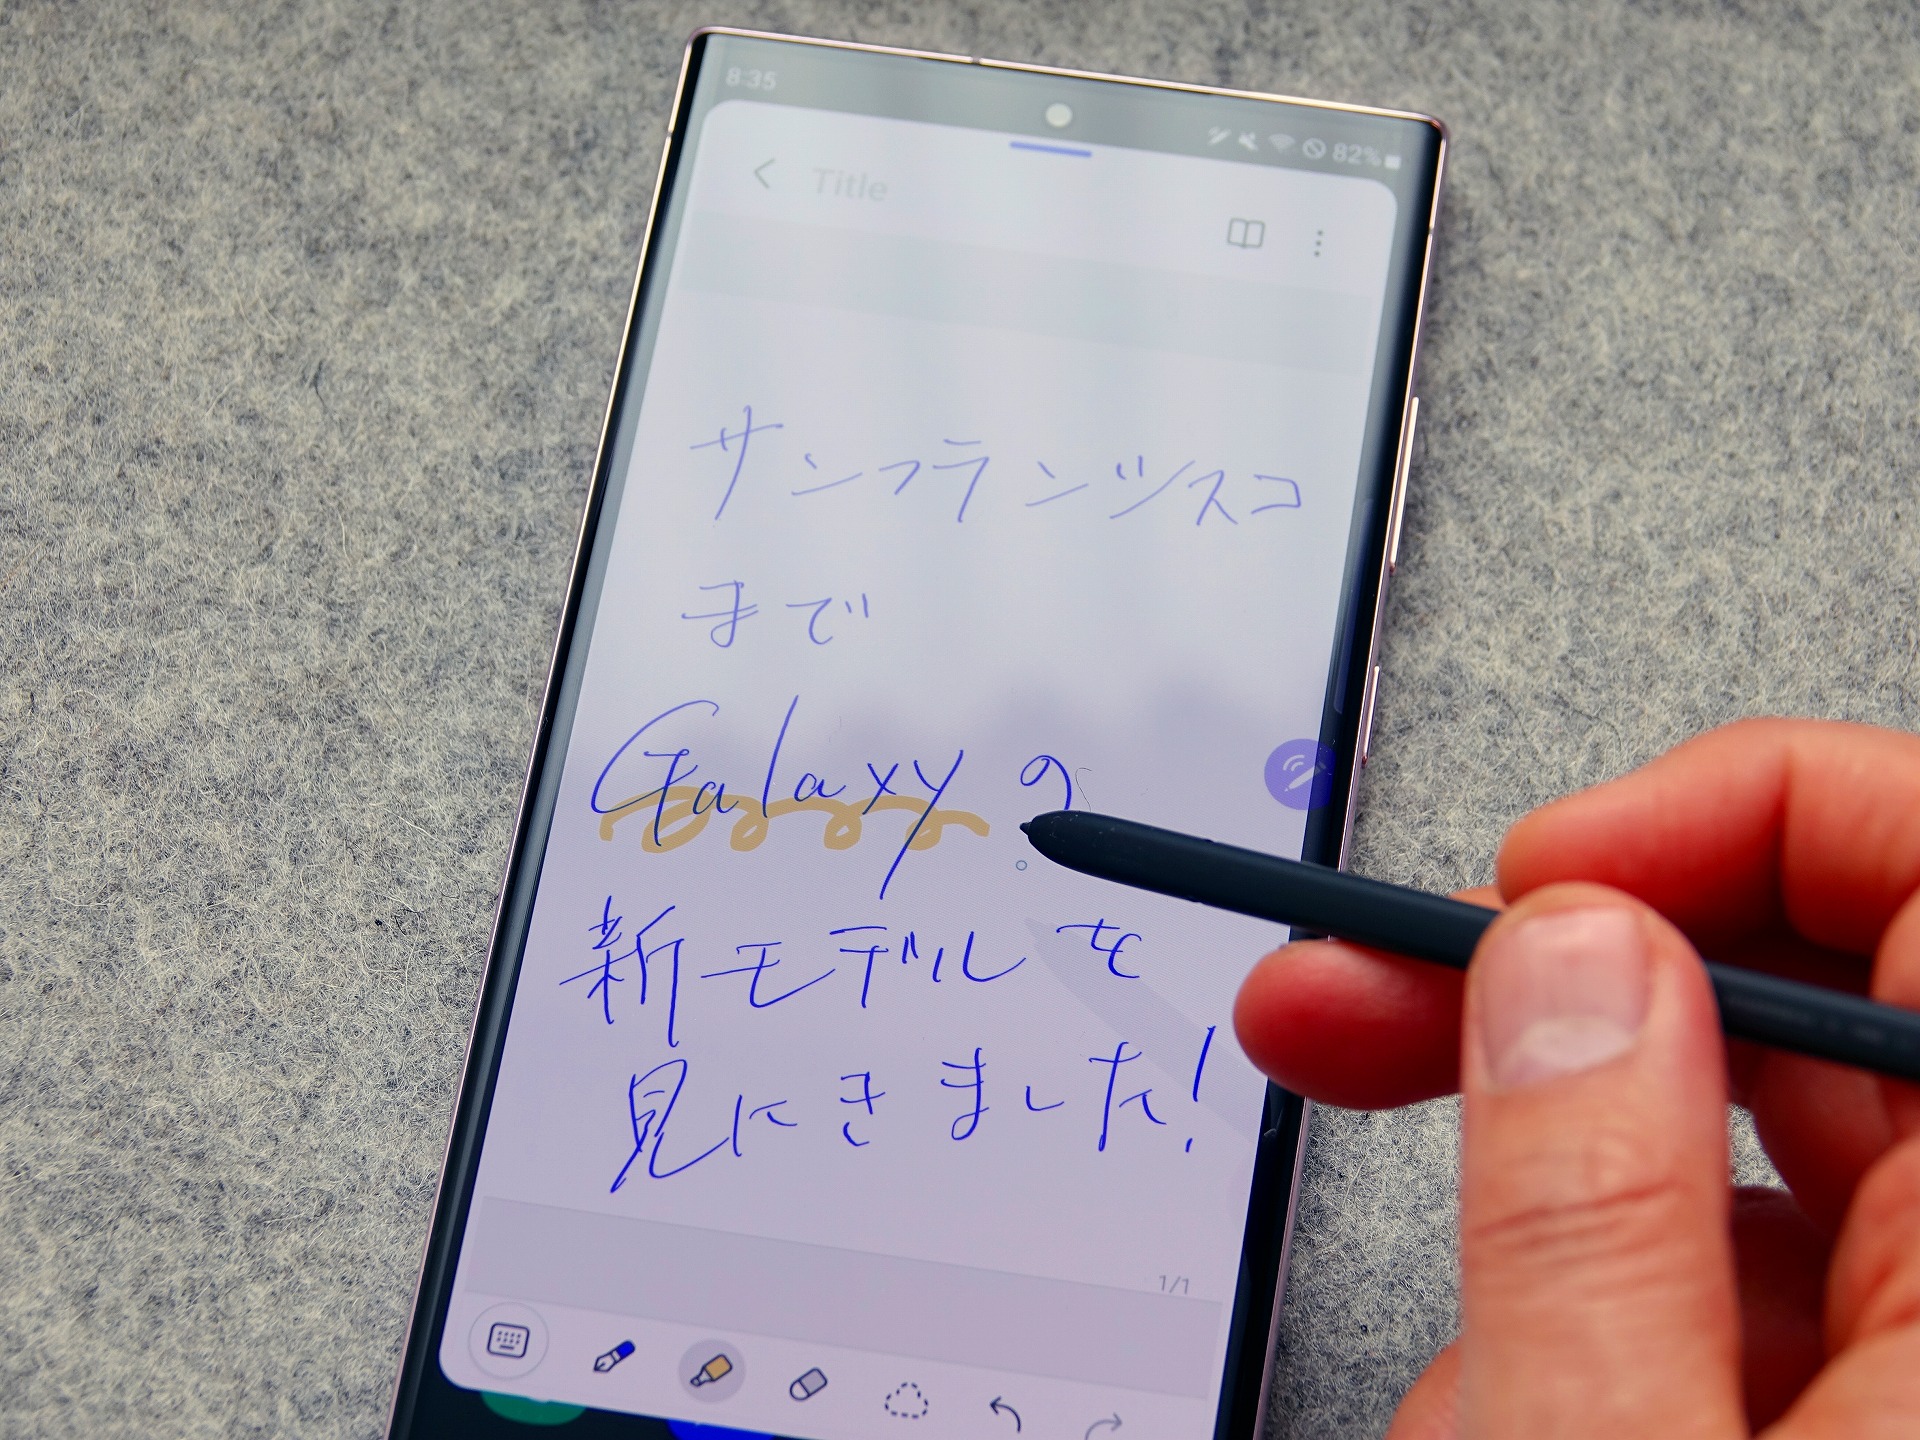 8:35
82%
Title
サンフランツスコ
まで
Galaxy の
新モデルを
見にきました!
1/1